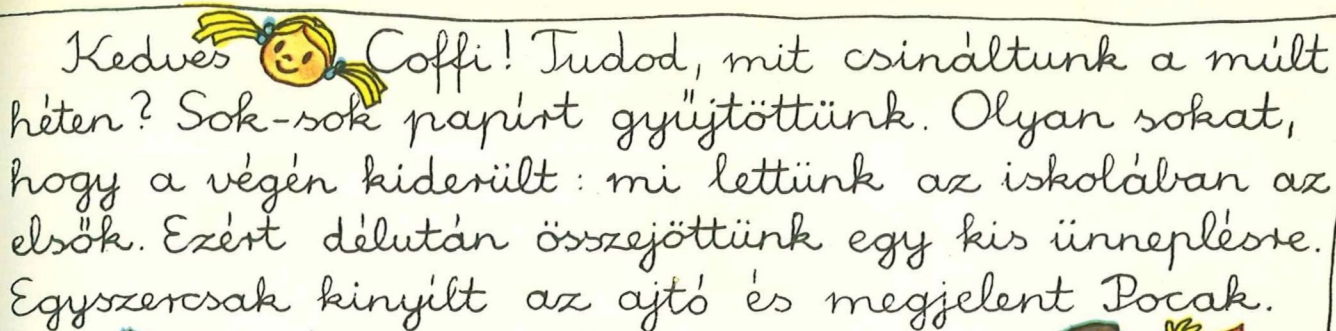 Kedves Coffi! Tudod, mit csináltunk a múlt
héten? Sok-sok papírt gyűjtöttünk. Olyan sokat,
hogy a végén kiderült: mi lettünk az iskolában az
elsők. Ezért délután összejöttünk egy kis ünneplésre.
Egyszercsak kinyílt az ajtó és megjelent Pocak.